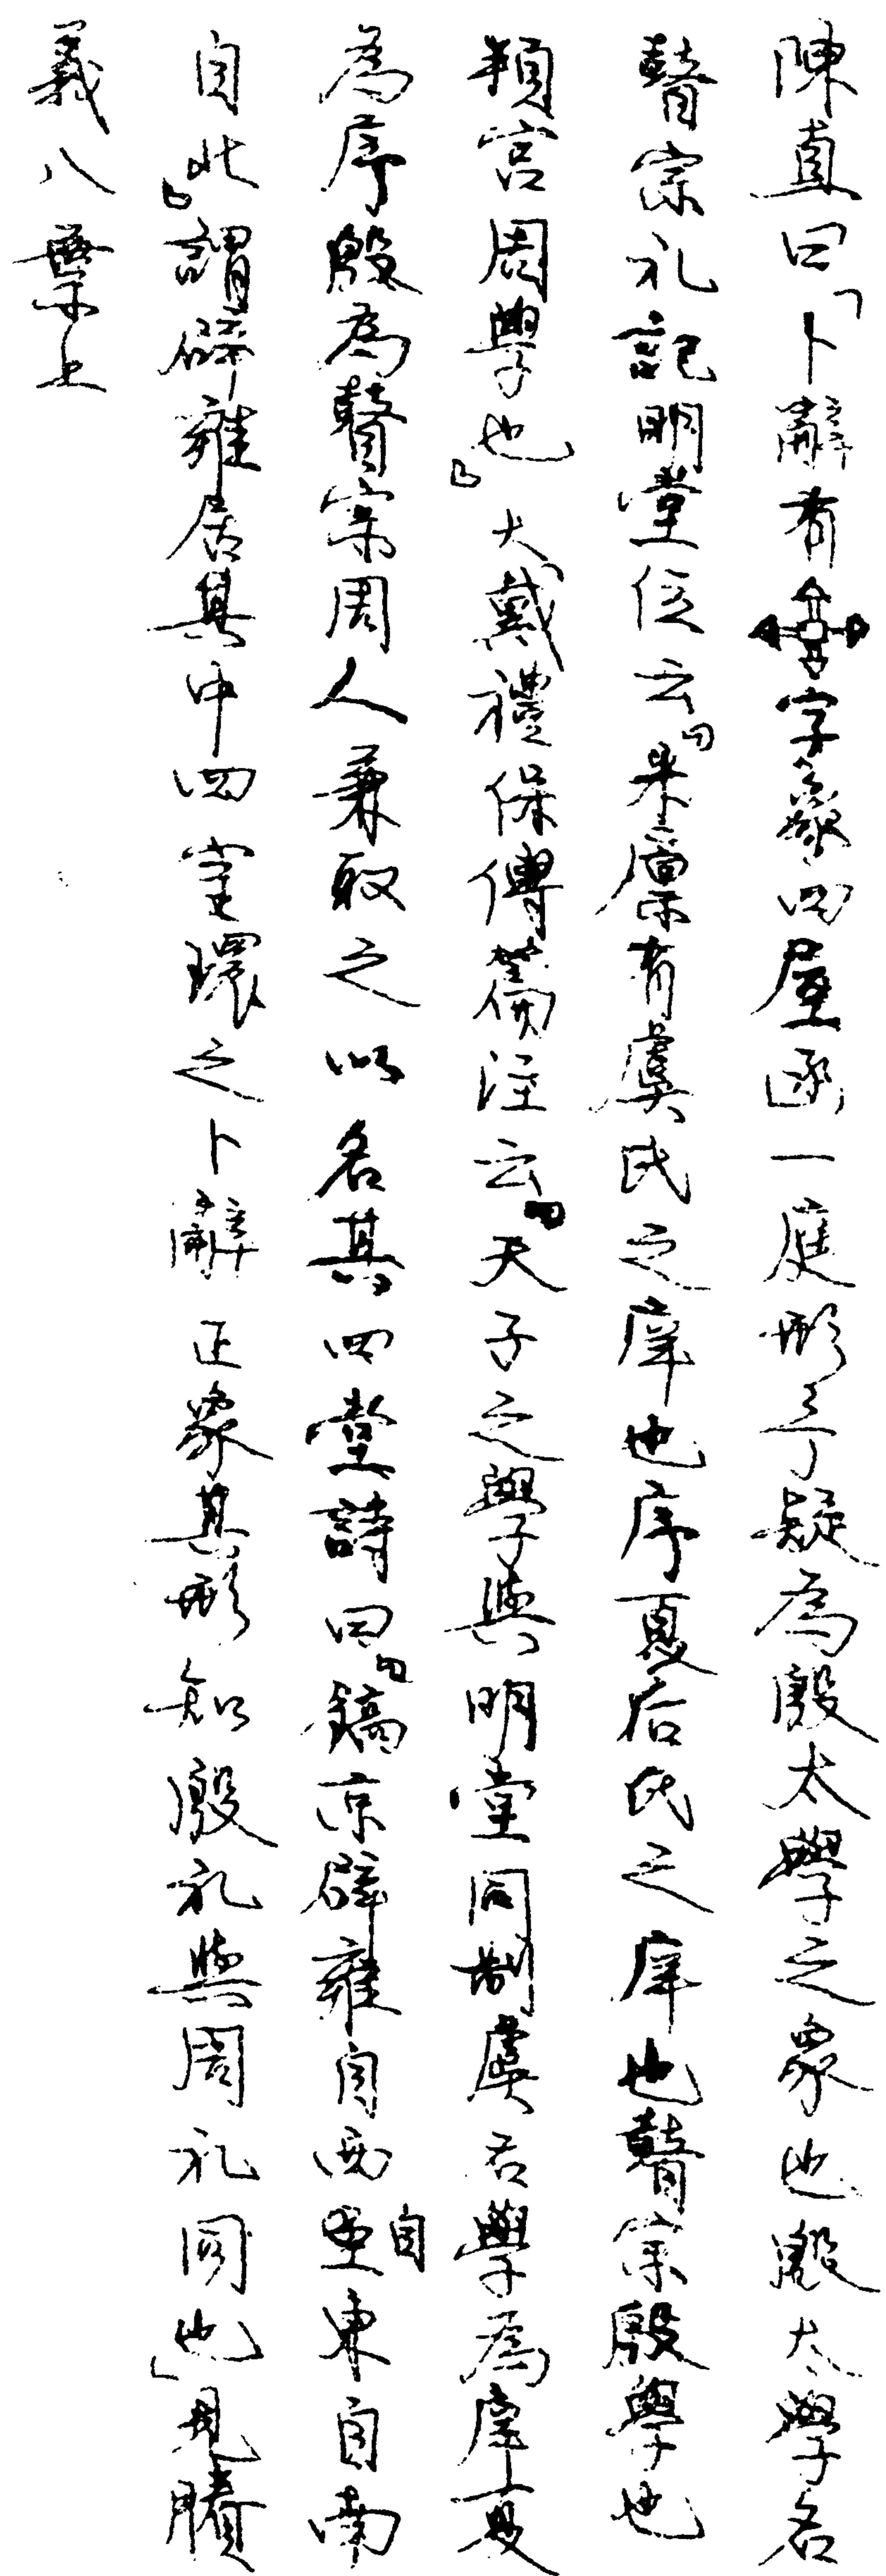 陳直曰「卜辭有字象四屋函一庭形予疑為殷太學之象也殷太學名
瞽宗礼記明堂位云『米廩有虞氏之庠也序夏后氏之序也瞽宗殷學也
頖宮周學也』大戴禮保傅篇注云『天子之學與明堂同制虞名學為庠夏
為序殷為瞽宗周人兼取之以名其四堂詩曰『鎬京辟雍自西自東自南
自北』謂辟雍居其中四室環之卜辭正象其形知殷礼與周礼同也」見賸
義八葉上